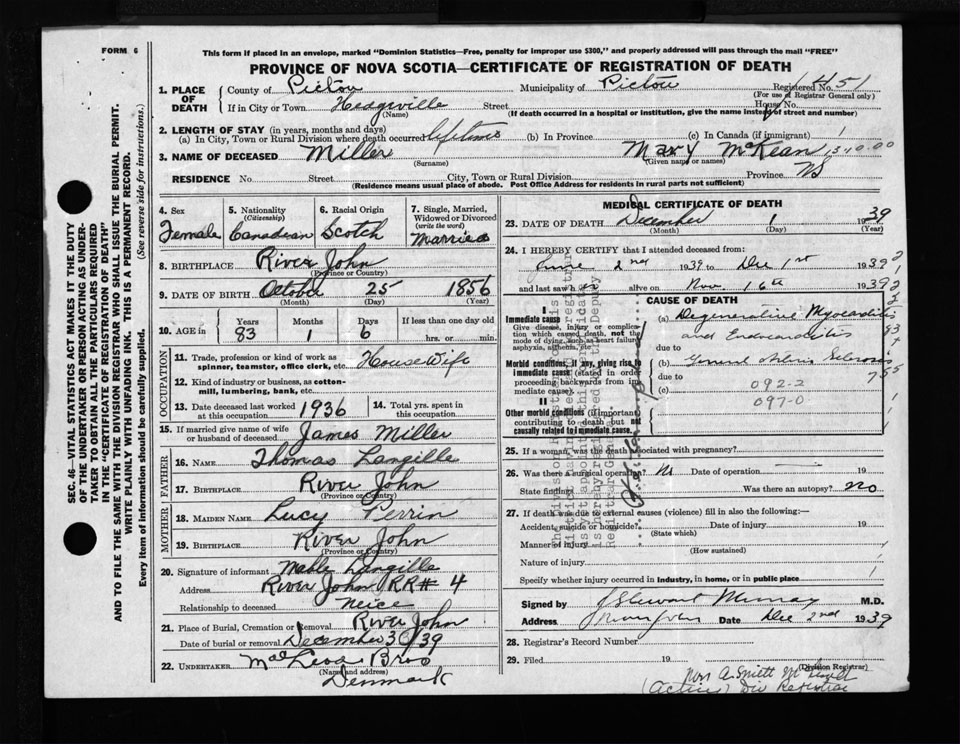 FORM 6
This form if placed in an envelope, marked "Dominion Statistics—Free, penalty for improper use $300," and properly addressed will pass through the mail "FREE"
PROVINCE OF NOVA SCOTIA—CERTIFICATE OF REGISTRATION OF DEATH
1. PLACE OF DEATH
County of Pictou Municipality of Pictou Registered No. 1451
(For use of Registrar General only)
If in City or Town Hedgville Street House No.
(Name) (If death occurred in a hospital or institution, give the name instead of street and number)
2. LENGTH OF STAY (in years, months and days)
(a) In City, Town or Rural Division where death occurred lifetime (b) In Province (c) In Canada (if immigrant)
3. NAME OF DECEASED Miller Mary McKean
(Surname) (Given name or names)
RESIDENCE No. Street City, Town or Rural Division Province NS
(Residence means usual place of abode. Post Office Address for residents in rural parts not sufficient)
4. Sex Female
5. Nationality (Citizenship) Canadian
6. Racial Origin Scotch
7. Single, Married, Widowed or Divorced (write the word) Married
8. BIRTHPLACE River John
(Province or Country)
9. DATE OF BIRTH October 25 1856
(Month) (Day) (Year)
10. AGE in Years Months Days If less than one day old
83 1 6 hrs. or min.
OCCUPATION
11. Trade, profession or kind of work as spinner, teamster, office clerk, etc. House Wife
12. Kind of industry or business, as cotton-mill, lumbering, bank, etc.
13. Date deceased last worked at this occupation 1936
14. Total yrs. spent in this occupation.
15. If married give name of wife or husband of deceased James Miller
FATHER
16. NAME Thomas Langille
17. BIRTHPLACE River John
(Province or Country)
MOTHER
18. MAIDEN NAME Lucy Perrin
19. BIRTHPLACE River John
(Province or Country)
20. Signature of informant Mable Langille
Address River John RR# 4
Relationship to deceased neice
21. Place of Burial, Cremation or Removal River John
Date of burial or removal December 3 /39
22. UNDERTAKER MacLeod Bros
(Name and address)
Denmark
MEDICAL CERTIFICATE OF DEATH
23. DATE OF DEATH December 1 1939
(Month) (Day) (Year)
24. I HEREBY CERTIFY that I attended deceased from:
June 2nd 1939 to Dec 1st 1939
and last saw h er alive on Nov. 16th 1939
CAUSE OF DEATH
I
Immediate cause
Give disease, injury or complication which caused death, not the mode of dying, such as heart failure, asphyxia, asthenia, etc.
(a) Degenerative Myocarditis and Endocarditis
due to
Morbid conditions, if any, giving rise to immediate cause (stated in order proceeding backwards from immediate cause)
(b) General Arterio Sclerosis
due to
(c) 092-2
097-0
II
Other morbid conditions (if important) contributing to death but not causally related to immediate cause.
25. If a woman, was the death associated with pregnancy?
26. Was there a surgical operation? No Date of operation 19
State findings Was there an autopsy? no
27. If death was due to external causes (violence) fill in also the following:—
Accident, suicide or homicide? Date of injury 19
(State which)
Manner of injury
(How sustained)
Nature of injury
Specify whether injury occurred in industry, in home, or in public place
Signed by J Stewart Murray M.D.
Address River John Date Dec 2nd 1939
28. Registrar's Record Number
29. Filed 19
(Division Registrar)
(Acting) Div Registrar
SEC. 46—VITAL STATISTICS ACT MAKES IT THE DUTY OF THE UNDERTAKER OR PERSON ACTING AS UNDERTAKER TO OBTAIN ALL THE PARTICULARS REQUIRED IN THE "CERTIFICATE OF REGISTRATION OF DEATH"
AND TO FILE THE SAME WITH THE DIVISION REGISTRAR WHO SHALL ISSUE THE BURIAL PERMIT.
WRITE PLAINLY WITH UNFADING INK. THIS IS A PERMANENT RECORD.
Every item of information should be carefully supplied. (See reverse side for instructions.)